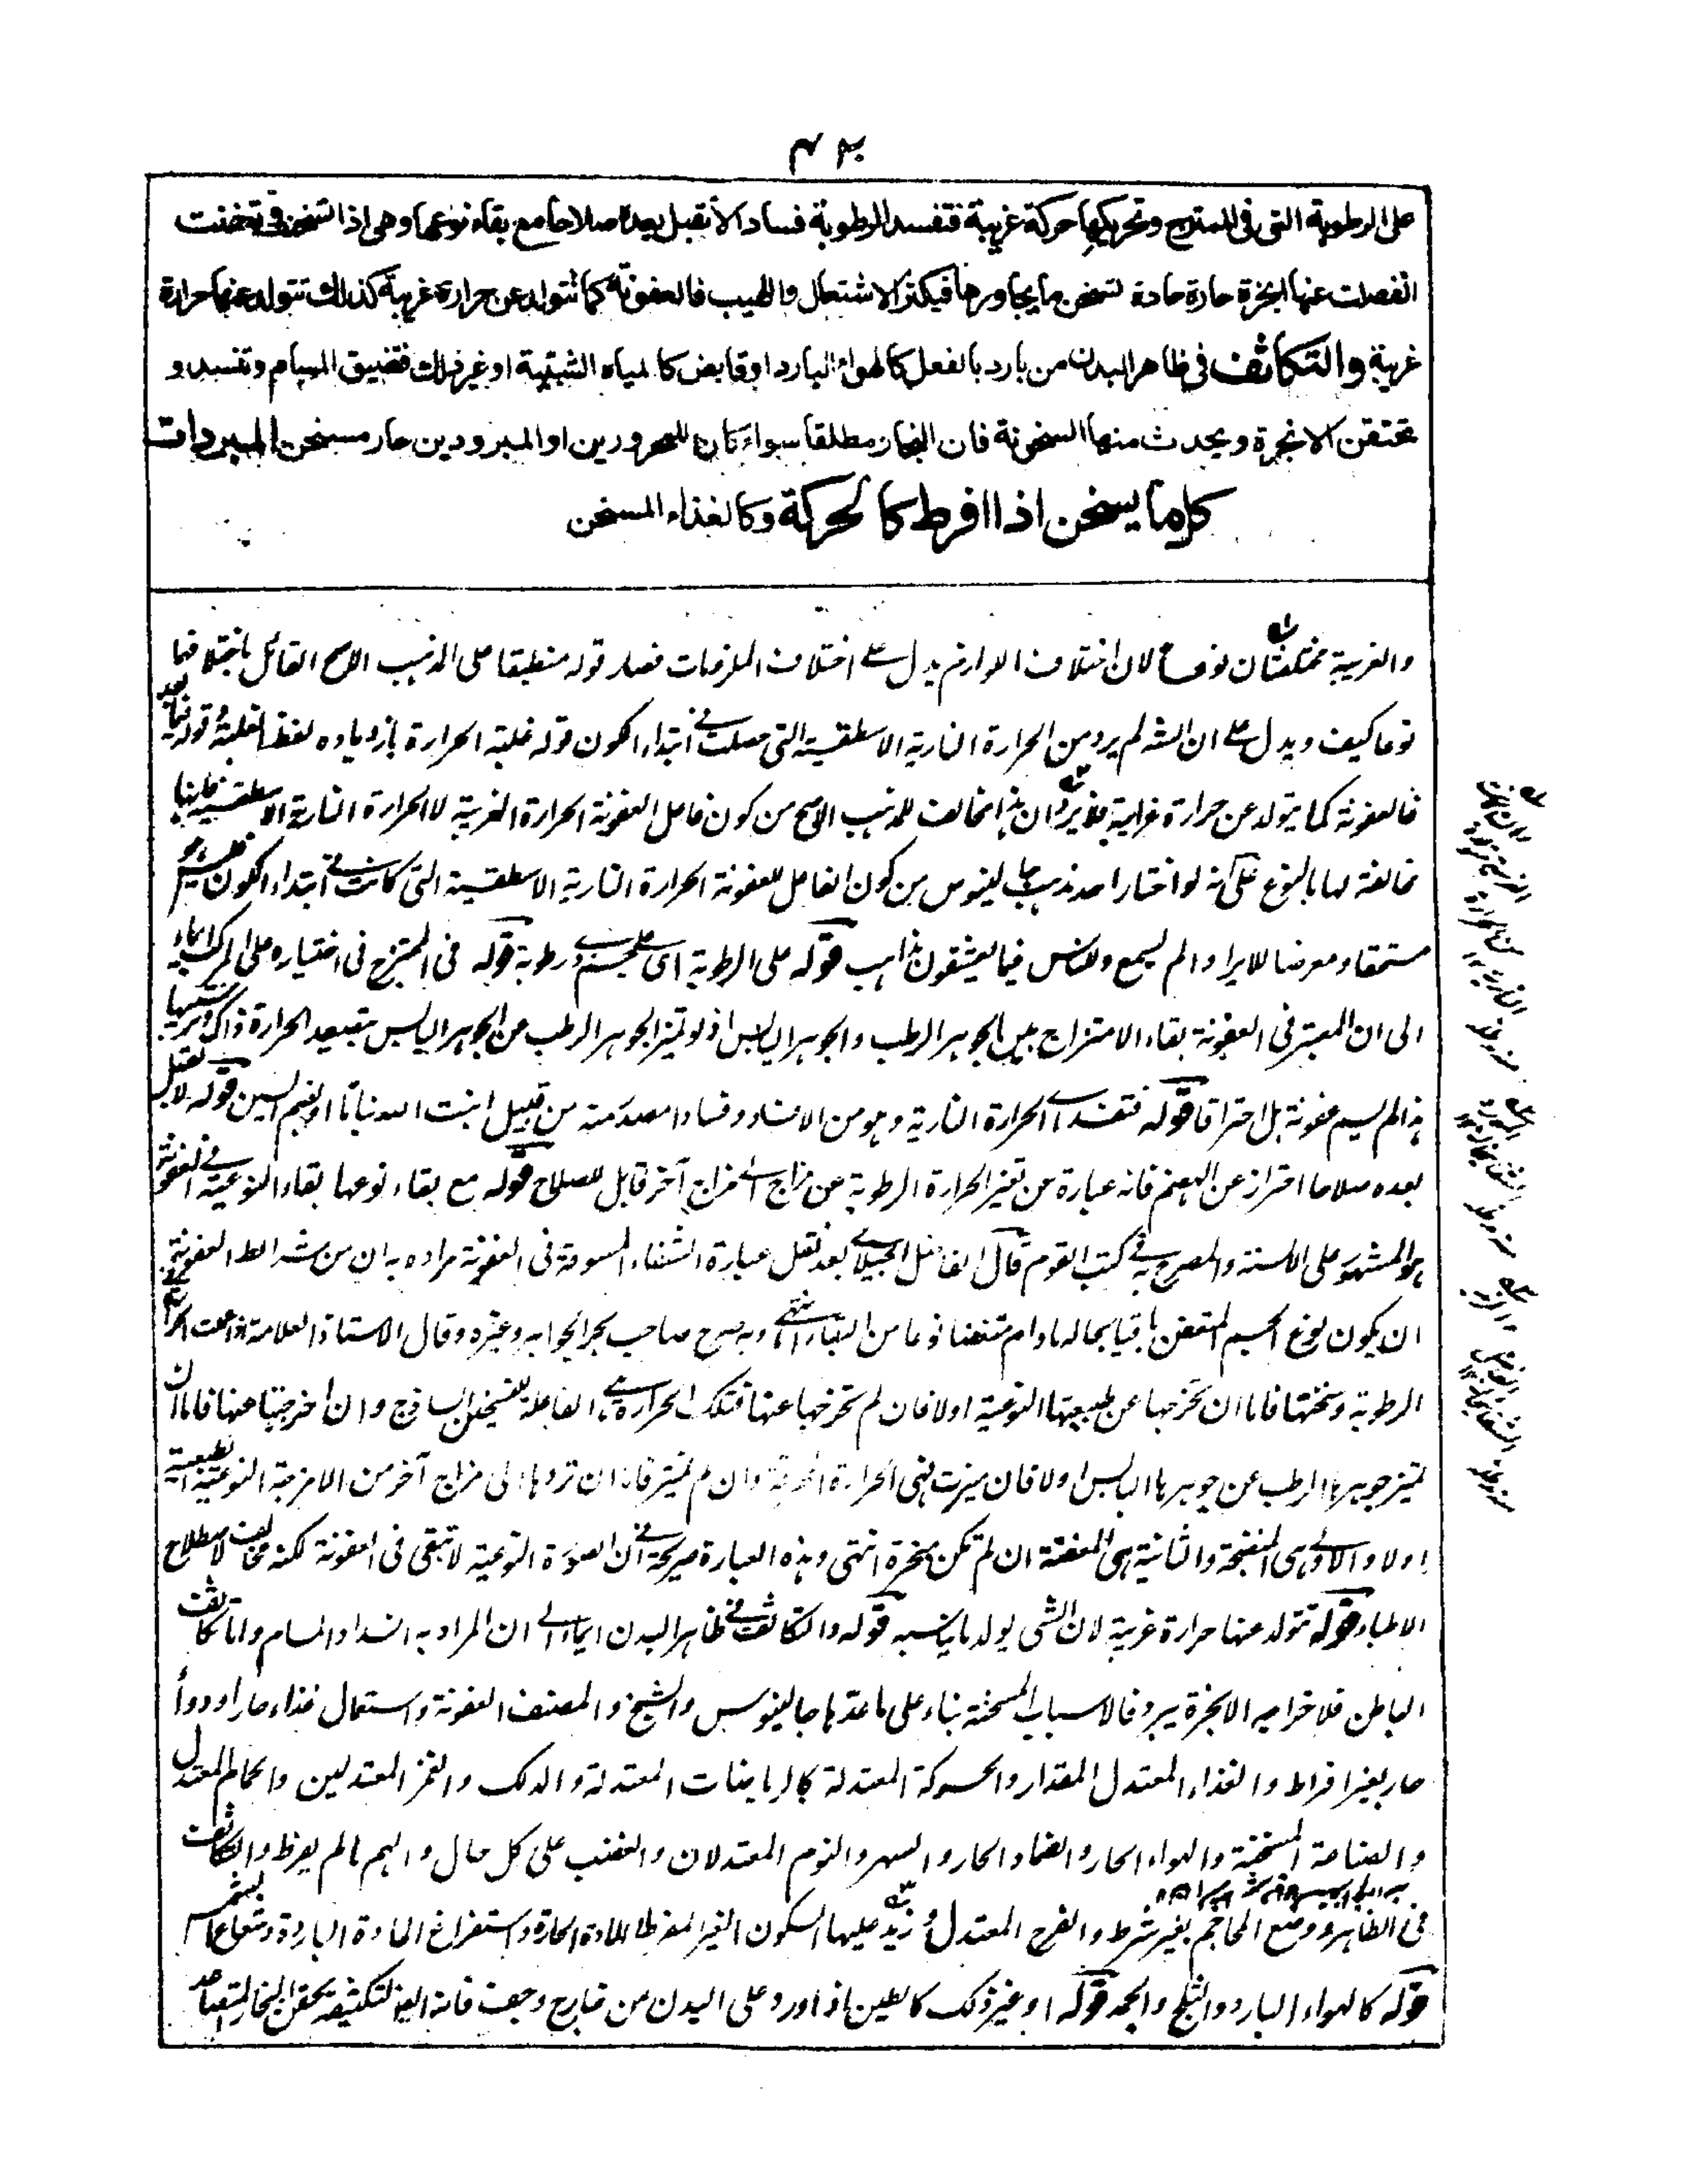 على الرطوبة التي في الممتزج وتحريكها حركة غريبة فتفسد الرطوبة فسادا لا تقبل بعده صلاحا مع بقاء نوعها وهي اذا تسخن وتعفنت
انفصلت عنها ابخرة حارة حادة تسخن ما يجاورها فيكثر الاشتعال واللهيب فالعفونة كما تتولد عن حرارة غريبة كذلك تتولد عنها حرارة
غريبة والتكاثف في ظاهر البدن من بارد بالفعل كالهواء البارد او قابض كالمياه الشبية او غير ذلك فتضيق المسام وتنسد و
تحتقن الابخرة ويحدث منها السخونة فان البخار مطلقا سواء كان للمحرورين او المبرودين حار مسخن المبردات
كل ما يسخن اذا افرط كالحركة وكالغذاء المسخن
والغريبة مختلفتان نوعا لان اختلاف اللوازم يدل على اختلاف الملزومات فصار قوله منطبقا على المذهب الاصح القائل باختلافهما
نوعا كيف ويدل على ان الشه لم يرد من الحرارة النارية الاسطقسية التي حصلت في ابتداء الكون قوله غلبة الحرارة بازدياده لفظ الغلبة وقوله فيما بعد
فالعفونة كما يتولد عن حرارة غرابية فلا يرد ان هذا مخالف للمذهب الاصح من كون فاعل العفونة الحرارة الغريبة لا الحرارة النارية الاسطقسية فانها
مخالفة لها بالنوع على انه لو اختار احد مذهب جالينوس من كون الفاعل للعفونة الحرارة النارية الاسطقسية التي كانت في ابتداء الكون
مستحقا ومعرضا للايراد الم يسمع وللناس فيما يعشقون مذاهب قوله على الرطوبة اي على جسم ذي رطوبة قوله في الممتزج في اختياره على المركب ايماء
الى ان المعتبر في العفونة بقاء الامتزاج بين الجوهر الرطب والجوهر اليابس اذ لو تميز الجوهر الرطب من الجوهر اليابس بتصعيد الحرارة ذاك
هذا لم يسم عفونة بل احتراقا قوله فتفسد اي الحرارة النارية وهو من الافساد وفسادا مصدر منه من قبيل انبت الله نباتا او بضم السين قوله لا تقبل
بعده صلاحا احتراز عن الهضم فانه عبارة عن تغير الحرارة الرطوبة عن مزاج الى مزاج آخر قابل للصلاح قوله مع بقاء نوعها بقاء النوعية في العفونة
هو المشهور على الالسنة والمصرح به في كتب القوم قال الفاضل الجيلاني بعد نقل عبارة الشفاء المسوقة في العفونة مراده به ان من شرائط العفونة
ان يكون نوع الجسم المتعفن باقيا بحاله ما دام متعفنا نوعا من البقاء انتهى وبه صرح صاحب بحر الجواهر وغيره وقال الاستاذ العلامة
الرطوبة وسخنتها فاما ان تخرجها عن طبيعتها النوعية اولا فان لم تخرجها عنها فتلك الحرارة هي الفاعلة للتسخين الساذج وان اخرجتها عنها فاما ان
تميز جوهرها الرطب عن جوهرها اليابس اولا فان ميزت فهي الحرارة المحرقة وان لم تميز فاما ان تردها الى مزاج آخر من الامزجة النوعية الطبيعية
اولا والاولى هي المنضجة والثانية هي المعفنة ان لم تكن مبخرة انتهى وهذه العبارة صريحة في ان الصورة النوعية لا تبقى في العفونة لكنه مخالف لاصطلاح
الاطباء قوله تتولد عنها حرارة غريبة لان الشي يولد ما يناسبه قوله والتكاثف في ظاهر البدن ايماء الى ان المراد به انسداد المسام واما تكاثف
الباطن فلاخراجه الابخرة يبرد فالاسباب المسخنة بناء على ما عدها جالينوس والشيخ والمصنف العفونة واستعمال غذاء حار او دواء
حار بغير افراط والغذاء المعتدل المقدار والحركة المعتدلة كالرياضات المعتدلة والدلك والغمز المعتدلين والحمام المعتدل
والصناعة المسخنة والهواء الحار والضماد الحار والسهر والنوم المعتدلان والغضب على كل حال والهم ما لم يفرط والتكاثف
في الظاهر ووضع المحاجم بغير شرط والفرح المعتدل وزيد عليها السكون الغير المفرط للمادة الحارة واستفراغ المادة الباردة وشعاع الشمس
قوله كالهواء البارد والثلج والجمد قوله او غير ذلك كالطين اذا ورد على البدن من خارج وجفت فانه ايضا لتكثيفه يحقن البخار المتصاعد